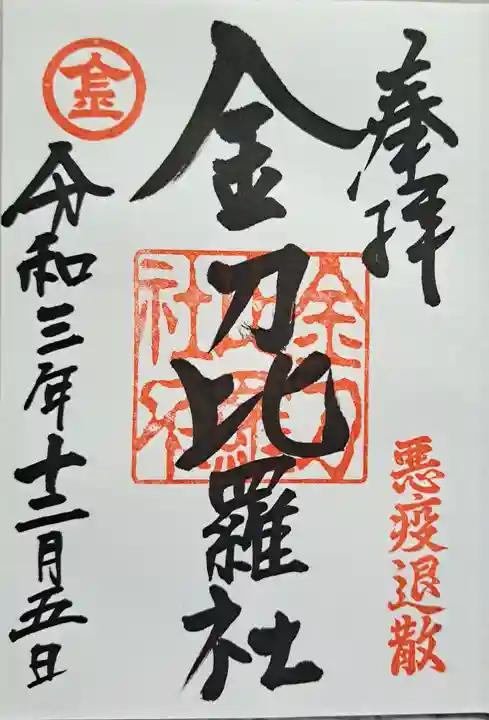 奉拝
悪疫退散
金刀比羅社
金刀比羅社
金
令和三年十二月五日